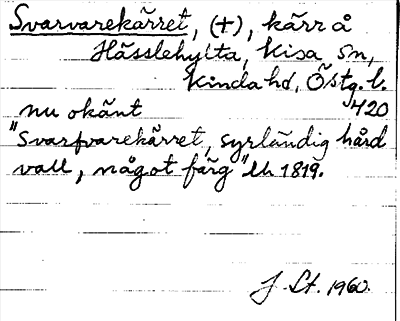 Svarvarekärret, (+), kärr å
Hässlehylta, Kisa sn,
Kinda hd, Östg. l.
420
nu okänt
"Svarfvarekärret, syrländig hård
vall, något färg" LM 1819.
J. St. 1960.